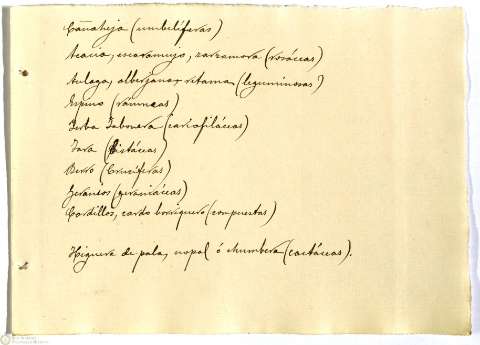 Cañaheja (umbelíferas)
Acacia, escaramujo, zarzamora (rosáceas)
Aulaga, alberjana, retama (leguminosas?)
Espino (rámneas)
Jerba Jabonera (cariofiláceas)
Jara (cistáceas)
Berro (Crucíferas)
Geranios (geraniáceas)
Cardillos, cardo borriquero (compuestas)
Higuera de pala, nopal ó chumbera (cactáceas).